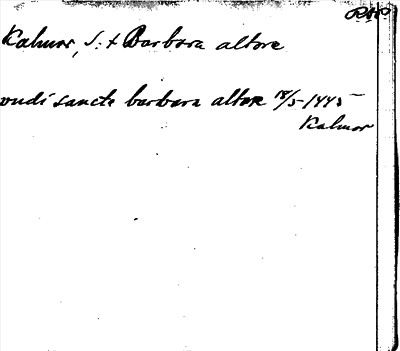 Kalmar, S:t Barbara altare
vndi sancte barbara altare 18/5-1445
Kalmar